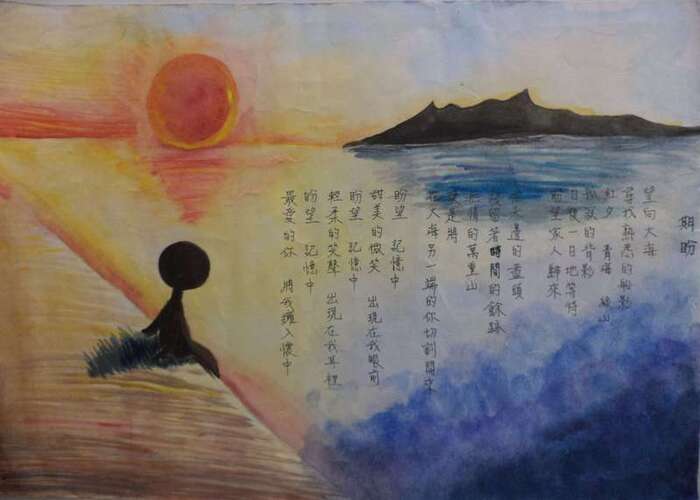 期盼
望向大海
尋找熟悉的船影
紅夕 青海 綠山
孤寂的背影
日復一日地等待
盼望家人歸來
天邊的盡頭
留著時間的餘跡
情的萬重山
是將
在大海另一端的你切割開來
盼望 記憶中
甜美的微笑 出現在我眼前
盼望 記憶中
輕柔的笑聲 出現在我耳裡
盼望 記憶中
最愛的你 將我擁入懷中